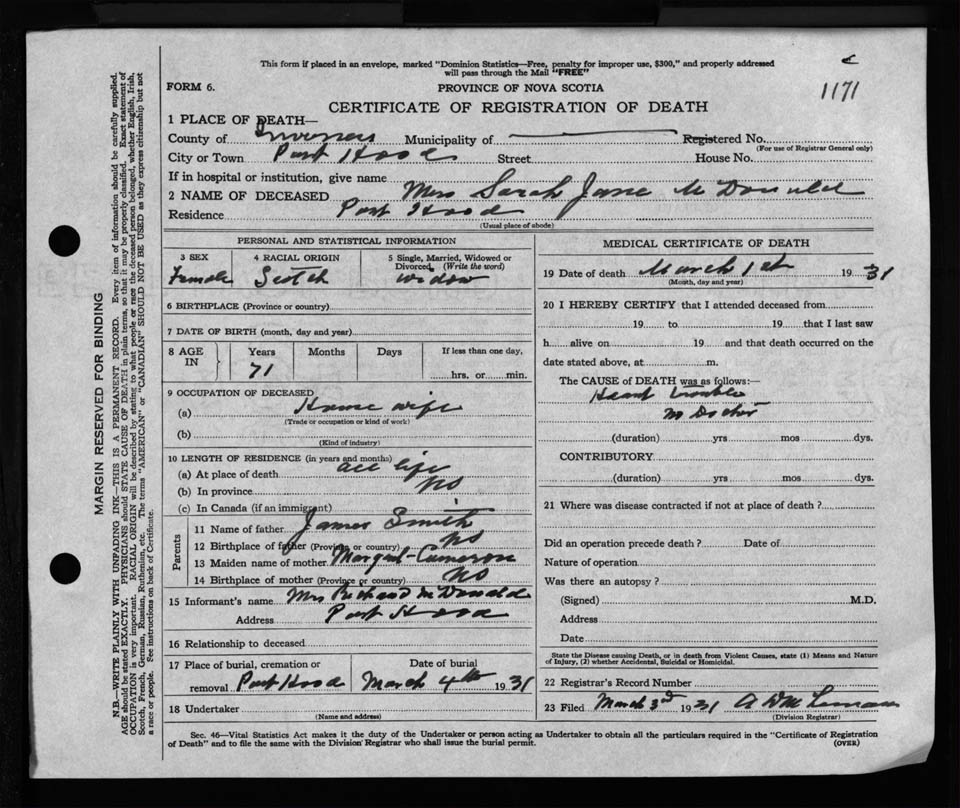 This form if placed in an envelope, marked "Dominion Statistics—Free, penalty for improper use, $300," and properly addressed
will pass through the Mail "FREE"
1171
FORM 6.
PROVINCE OF NOVA SCOTIA
CERTIFICATE OF REGISTRATION OF DEATH
1 PLACE OF DEATH—
County of Inverness Municipality of Registered No.
(For use of Registrar General only)
City or Town Port Hood Street House No.
If in hospital or institution, give name
2 NAME OF DECEASED Mrs Sarah Jane McDonald
Residence Port Hood
(Usual place of abode)
PERSONAL AND STATISTICAL INFORMATION
3 SEX 4 RACIAL ORIGIN 5 Single, Married, Widowed or
Divorced, (Write the word)
Female Scotch widow
6 BIRTHPLACE (Province or country)
7 DATE OF BIRTH (month, day and year)
8 AGE IN Years Months Days If less than one day,
71 hrs. or min.
9 OCCUPATION OF DECEASED
(a) House wife
(Trade or occupation or kind of work)
(b)
(Kind of industry)
10 LENGTH OF RESIDENCE (in years and months)
(a) At place of death all life
(b) In province NS
(c) In Canada (if an immigrant)
Parents
11 Name of father James Smith
12 Birthplace of father (Province or country) NS
13 Maiden name of mother Margaret Cameron
14 Birthplace of mother (Province or country) NS
15 Informant's name Mrs Richard McDonald
Address Port Hood
16 Relationship to deceased
17 Place of burial, cremation or Date of burial
removal Port Hood March 4th 1931
18 Undertaker
(Name and address)
MEDICAL CERTIFICATE OF DEATH
19 Date of death March 1st 1931
(Month, day and year)
20 I HEREBY CERTIFY that I attended deceased from
19 to 19 that I last saw
h alive on 19 and that death occurred on the
date stated above, at m.
The CAUSE of DEATH was as follows:—
Heart trouble
no Doctor
(duration) yrs mos dys.
CONTRIBUTORY
(duration) yrs mos dys.
21 Where was disease contracted if not at place of death?
Did an operation precede death? Date of
Nature of operation
Was there an autopsy?
(Signed) M.D.
Address
Date
State the Disease causing Death, or in death from Violent Causes, state (1) Means and Nature
of Injury, (2) whether Accidental, Suicidal or Homicidal.
22 Registrar's Record Number
23 Filed March 3rd 1931 A D
(Division Registrar)
Sec. 46—Vital Statistics Act makes it the duty of the Undertaker or person acting as Undertaker to obtain all the particulars required in the "Certificate of Registration
of Death" and to file the same with the Division Registrar who shall issue the burial permit.
(OVER)
MARGIN RESERVED FOR BINDING
N.B.—WRITE PLAINLY WITH UNFADING INK—THIS IS A PERMANENT RECORD. Every item of information should be carefully supplied.
AGE should be stated EXACTLY. PHYSICIANS should STATE CAUSE OF DEATH in plain terms, so that it may be properly classified. Exact statement of
OCCUPATION is very important. RACIAL ORIGIN will be described by stating to what people or race the deceased person belonged, whether English, Irish,
Scotch, French, German, Russian, Ruthenian, etc. The terms "AMERICAN" or "CANADIAN" SHOULD NOT BE USED as they express citizenship but not
a race or people. See instructions on back of Certificate.